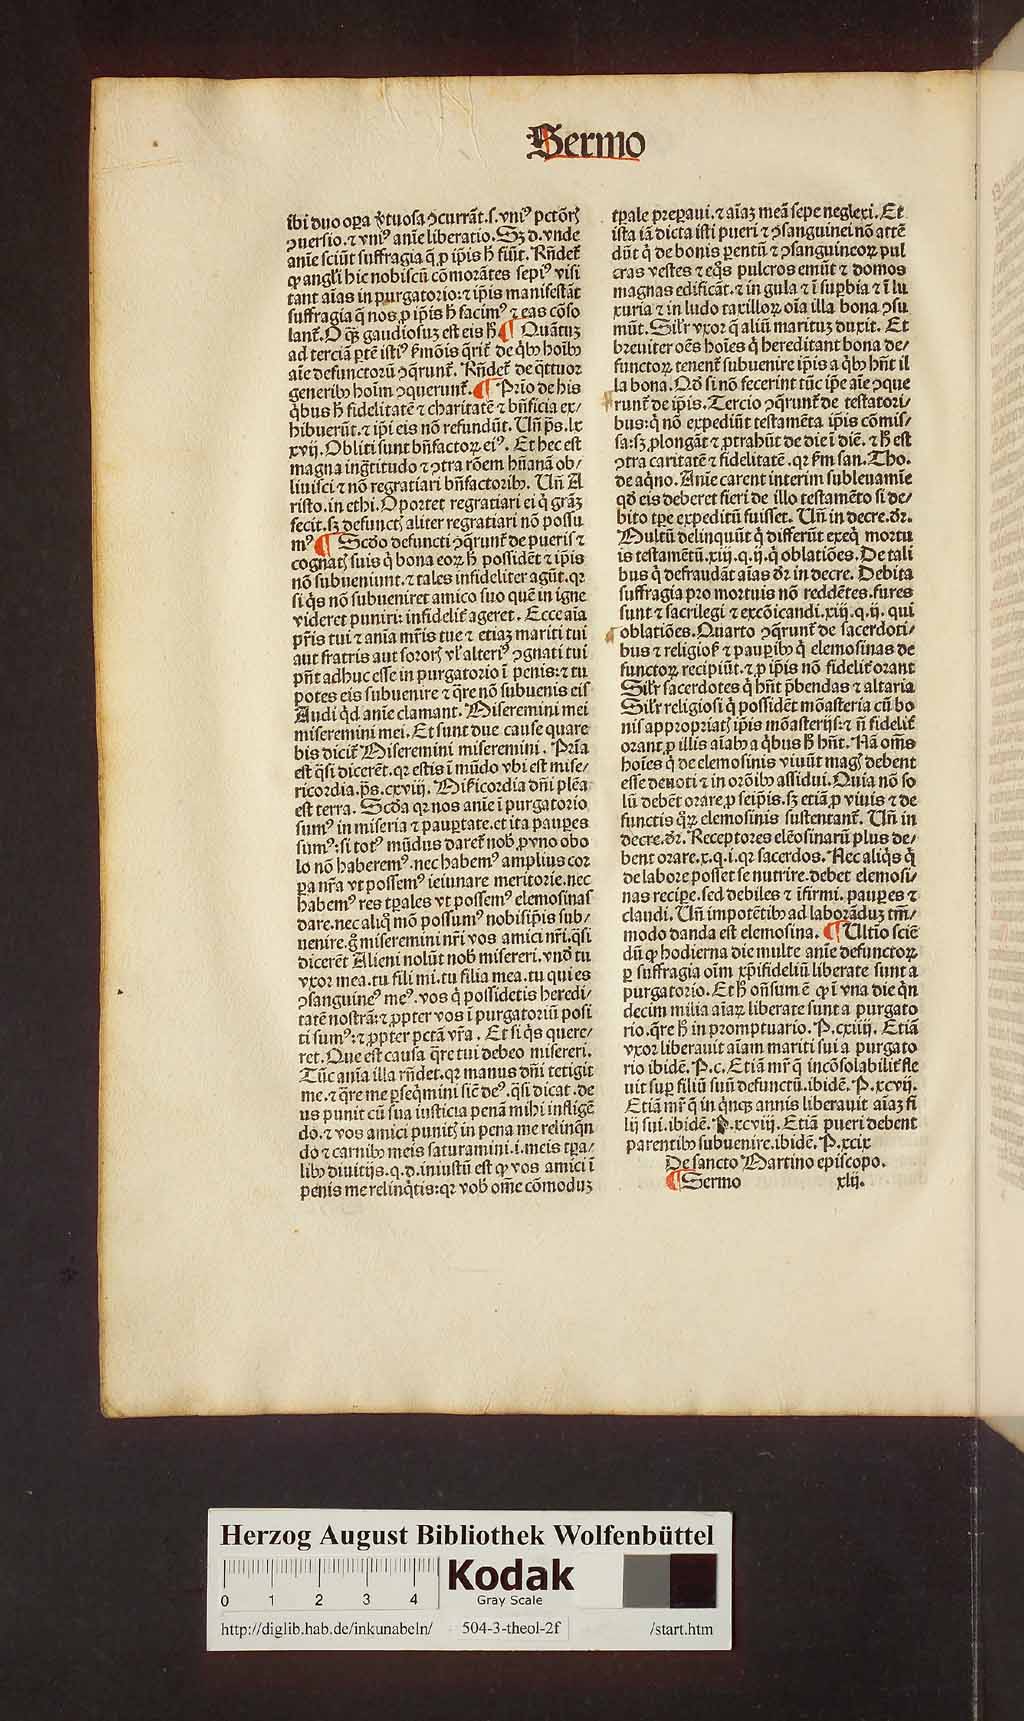 Sermo
ibi duo oꝑa v̓tuosa ꝯcurrāt.s.vniꝰ pctōrꝭ
ꝯuersio.⁊ vniꝰ anīe liberatio. Sꝫ d. vnde
anīe sciūt suffragia q̄ ꝓ ip̄is h̄ fiūt. Rñdet᷑
ꝙ angl̓i hic nobiscū cōmorātes sepiꝰ visi
tant aīas in purgatorio:⁊ ip̄is manifestāt
suffragia q̄ nos ꝓ ip̄is h̄ facimꝰ ⁊ eas cōso
lant᷑. O q̄ꝫ gaudiosuꝫ est eis h̄ ¶ Quātuꝫ
ad terciā ꝑtē istiꝰ s̓mōis q̄rit᷑ de qͥbꝰ hoībꝰ
aīe defunctorū ꝯq̄runt᷑. Rñdet᷑ de q̄ttuor
generibꝰ hoīm ꝯquerunt᷑. ¶ Prīo de his
qͥbus h̄ fidelitatē ⁊ charitatē ⁊ bn̄ficia ex/
hibuerūt.⁊ ip̄i eis nō refundūt. Uñ p̄s. lx
xvij. Obliti sunt bn̄factoꝝ eiꝰ. Et hec est
magna ingͣtitudo ⁊ ꝯtra rōem hūanā ob/
liuisci ⁊ nō regratiari bn̄factoribꝰ. Uñ A
risto. in ethi. Oportet regratiari ei qͥ grāꝫ
fecit.sꝫ defunctꝭ aliter regratiari nō possu
mꝰ ¶ Scd̓o defuncti ꝯq̄runt᷑ de pueris ⁊
cognatꝭ suis qͥ bona eoꝝ h̄ possidēt ⁊ ip̄is
nō subueniunt.⁊ tales infideliter agūt.qꝛ
si qͥs nō subueniret amico suo quē in igne
videret puniri: infidelit᷑ ageret. Ecce aīa
pr̄is tui ⁊ anīa mr̄is tue ⁊ etiaꝫ mariti tui
aut fratris aut sororꝭ vl̓ alteriꝰ ꝯgnati tui
pn̄t adhuc esse in purgatorio ī penis:⁊ tu
potes eis subuenire ⁊ q̄re nō subuenis eis
Audi qͥd anīe clamant. Miseremini mei
miseremini mei. Et sunt due cause quare
bis dicūt Miseremini miseremini. Prīa
est q̄si dicerēt.qꝛ estis ī mūdo vbi est mise/
ricordia.p̄s.cxviij. Mis̓icordia dn̄i plēa
est terra. Scd̓a qꝛ nos anīe ī purgatorio
sumꝰ in miseria ⁊ pauꝑtate.et ita pauꝑes
sumꝰ:si totꝰ mūdus daret᷑ nob̓.ꝓ vno obo
lo nō haberemꝰ.nec habemꝰ amplius cor
ꝑa nr̄a vt possemꝰ ieiunare meritorie.nec
habemꝰ res tꝑales vt possemꝰ elemosinas
dare.nec aliqͦ mō possumꝰ nobisip̄is sub/
uenire.gͦ miseremini nr̄i vos amici nr̄i.q̄si
dicerēt Alieni nolūt nob̓ misereri. vnd̓ tu
vxor mea.tu fili mi.tu filia mea.tu qui es
ꝯsanguineꝰ meꝰ.vos qͥ possidetis heredi/
tatē nostrā:⁊ ꝓpter vos ī purgatoriū posi
ti sumꝰ:⁊ ꝓpter pctā vr̄a. Et si qͥs quere/
ret. Que est causa q̄re tui debeo misereri.
Tūc anīa illa rn̄det.qꝛ manus dn̄i tetigit
me.⁊ q̄re me ꝑseqͥmini sic̄ deꝰ.q̄si dicat.de
us punit cū sua iusticia penā mihi infligē
do.⁊ vos amici punitꝭ in pena me relinqͣn
do ⁊ carnibꝰ meis saturamini.i.meis tꝑa/
libꝰ diuitijs.q.d.iniustū est ꝙ vos amici ī
penis me relinqͥtis:qꝛ vob̓ om̄e cōmoduꝫ
tꝑale preparaui.⁊ aīaꝫ meā sepe neglexi. Et
ista iā dicta isti pueri ⁊ ꝯsanguinei nō attē
dūt qͥ de bonis parentū ⁊ ꝯsanguineoꝝ pul
cras vestes ⁊ eqͦs pulcros emūt ⁊ domos
magnas edificāt.⁊ in gula ⁊ ī suꝑbia ⁊ ī lu
xuria ⁊ in ludo taxilloꝝ oīa illa bona ꝯsu
mūt. Sil̓r vxor q̄ aliū marituꝫ duxit. Et
breuiter oēs hoīes qͥ hereditant bona de/
functoꝝ tenent᷑ subuenire ip̄is a qͥbꝰ hn̄t il
la bona. Qd̓ si nō fecerint tūc ip̄e aīe ꝯque
runt᷑ de ip̄is. Tercio ꝯq̄runt᷑ de testatori/
bus:qͥ nō expediūt testamēta ip̄is cōmis/
sa:sꝫ ꝓlongāt ⁊ ꝓtrahūt de die ī diē.⁊ h̄ est
ꝯtra caritatē ⁊ fidelitatē.qꝛ s̓m san. Tho.
de aqͥno. Anīe carent interim subleuamīe
qd̓ eis deberet fieri de illo testamēto si de/
bito tꝑe expeditū fuisset. Uñ in decre.dr̄.
Multū delinquūt qͥ differūt exeqͥ mortu
is testamētū.xiij.q.ij.qͥ oblatiōes. De tali
bus qͥ defraudāt aīas dr̄ in decre. Debita
suffragia pro mortuis nō reddētes.fures
sunt ⁊ sacrilegi ⁊ excōicandi.xiij.q.ij. qui
oblatiōes. Quarto ꝯq̄runt᷑ de sacerdoti/
bus ⁊ religios̓ ⁊ pauꝑibꝰ qͥ elemosinas de
functoꝝ recipiūt.⁊ ꝓ ip̄is nō fidelit᷑ orant
Sil̓r sacerdotes qͥ hn̄t p̄bendas ⁊ altaria
Sil̓r religiosi qͥ possidēt mōasteria cū bo
nis appropriatꝭ ip̄is mōasterijs:⁊ n̄ fidelit᷑
orant ꝓ illis aīabꝰ a qͥbus h̄ hn̄t. Nā om̄s
hoīes qͥ de elemosinis viuūt magꝭ debent
esse deuoti ⁊ in orōibꝰ assidui. Quia nō so
lū debēt orare ꝓ seip̄is.sꝫ etiā ꝓ viuis ⁊ de
functis qͦꝝ elemosinis sustentant᷑. Uñ in
decre.dr̄. Receptores elēosinarū plus de/
bent orare.x.q.i.qꝛ sacerdos. Nec aliqͥs qͥ
de labore posset se nutrire.debet elemosi/
nas reciꝑe.sed debiles ⁊ īfirmi. pauꝑes ⁊
claudi. Uñ impotētibꝰ ad laborāduꝫ tm̄/
modo danda est elemosina. ¶ Ultīo sciē
dū ꝙ hodierna die multe anīe defunctoꝝ
ꝑ suffragia oīm xp̄ifideliū liberate sunt a
purgatorio. Et h̄ on̄sum ē ꝙ ī vna die qͥn
decim milia aīaꝝ liberate sunt a purgato
rio.q̄re h̄ in promptuario. P. cxiiij. Etiā
vxor liberauit aīam mariti sui a purgato
rio ibidē. P. c. Etiā mr̄ q̄ incōsolabilit᷑ fle
uit suꝑ filiū suū defunctū.ibidē. P. xcvij.
Etiā mr̄ q̄ in qͥnqꝫ annis liberauit aīaꝫ fi
lij sui.ibidē. P. xcviij. Etiā pueri debent
parentibꝰ subuenire.ibidē. P. xcix
De sancto Martino episcopo.
¶ Sermo xlij.
Herzog August Bibliothek Wolfenbüttel
0 1 2 3 4
Kodak
Gray Scale
http://diglib.hab.de/inkunabeln/ 504-3-theol-2f /start.htm